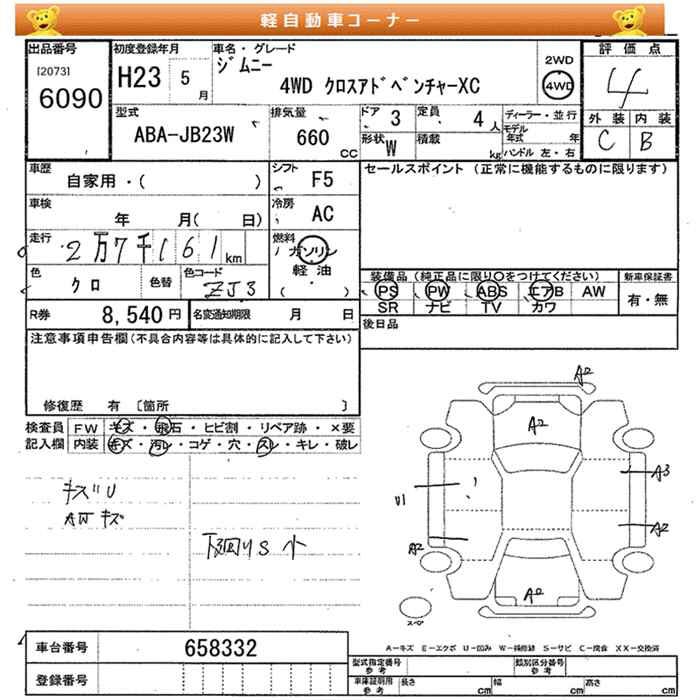 軽自動車コーナー
出品番号
[2073]
6090
初度登録年月
H23 5月
車名・グレード
ジムニー
4WD クロスアドベンチャーXC
2WD
4WD
評価点
4
外装 内装
C B
型式
ABA-JB23W
排気量
660 CC
ドア 3
形状 W
定員 4人
積載 kg
ディーラー・並行
モデル年式 年
ハンドル 左・右
車歴
自家用・( )
シフト F5
車検
年 月( 日)
冷房 AC
走行
2万7千161km
燃料
ガソリン
軽油
( )
色
クロ
色替
色コード
ZJ3
R券 8,540円
名変通知期限 月 日
セールスポイント(正常に機能するものに限ります)
装備品(純正品に限り○をつけてください)
PS PW ABS エアB AW
SR ナビ TV カワ
新車保証書
有・無
後日品
注意事項申告欄(不具合内容等は具体的に記入して下さい)
修復歴 有 [箇所 ]
検査員記入欄
FW キズ・飛石・ヒビ割・リペア跡・×要
内装 キズ・汚レ・コゲ・穴・スレ・キレ・破レ
キズU
AWキズ
下廻りS小
A2
A2
A3
A2
A2
A2
U1
スペア
A-キズ E-エクボ U-凹み W-補修跡 S-サビ C-腐食 XX-交換済
車台番号 658332
登録番号
型式指定番号
参考
類別区分番号
参考
車庫証明用
参考
長さ cm 幅 cm 高さ cm